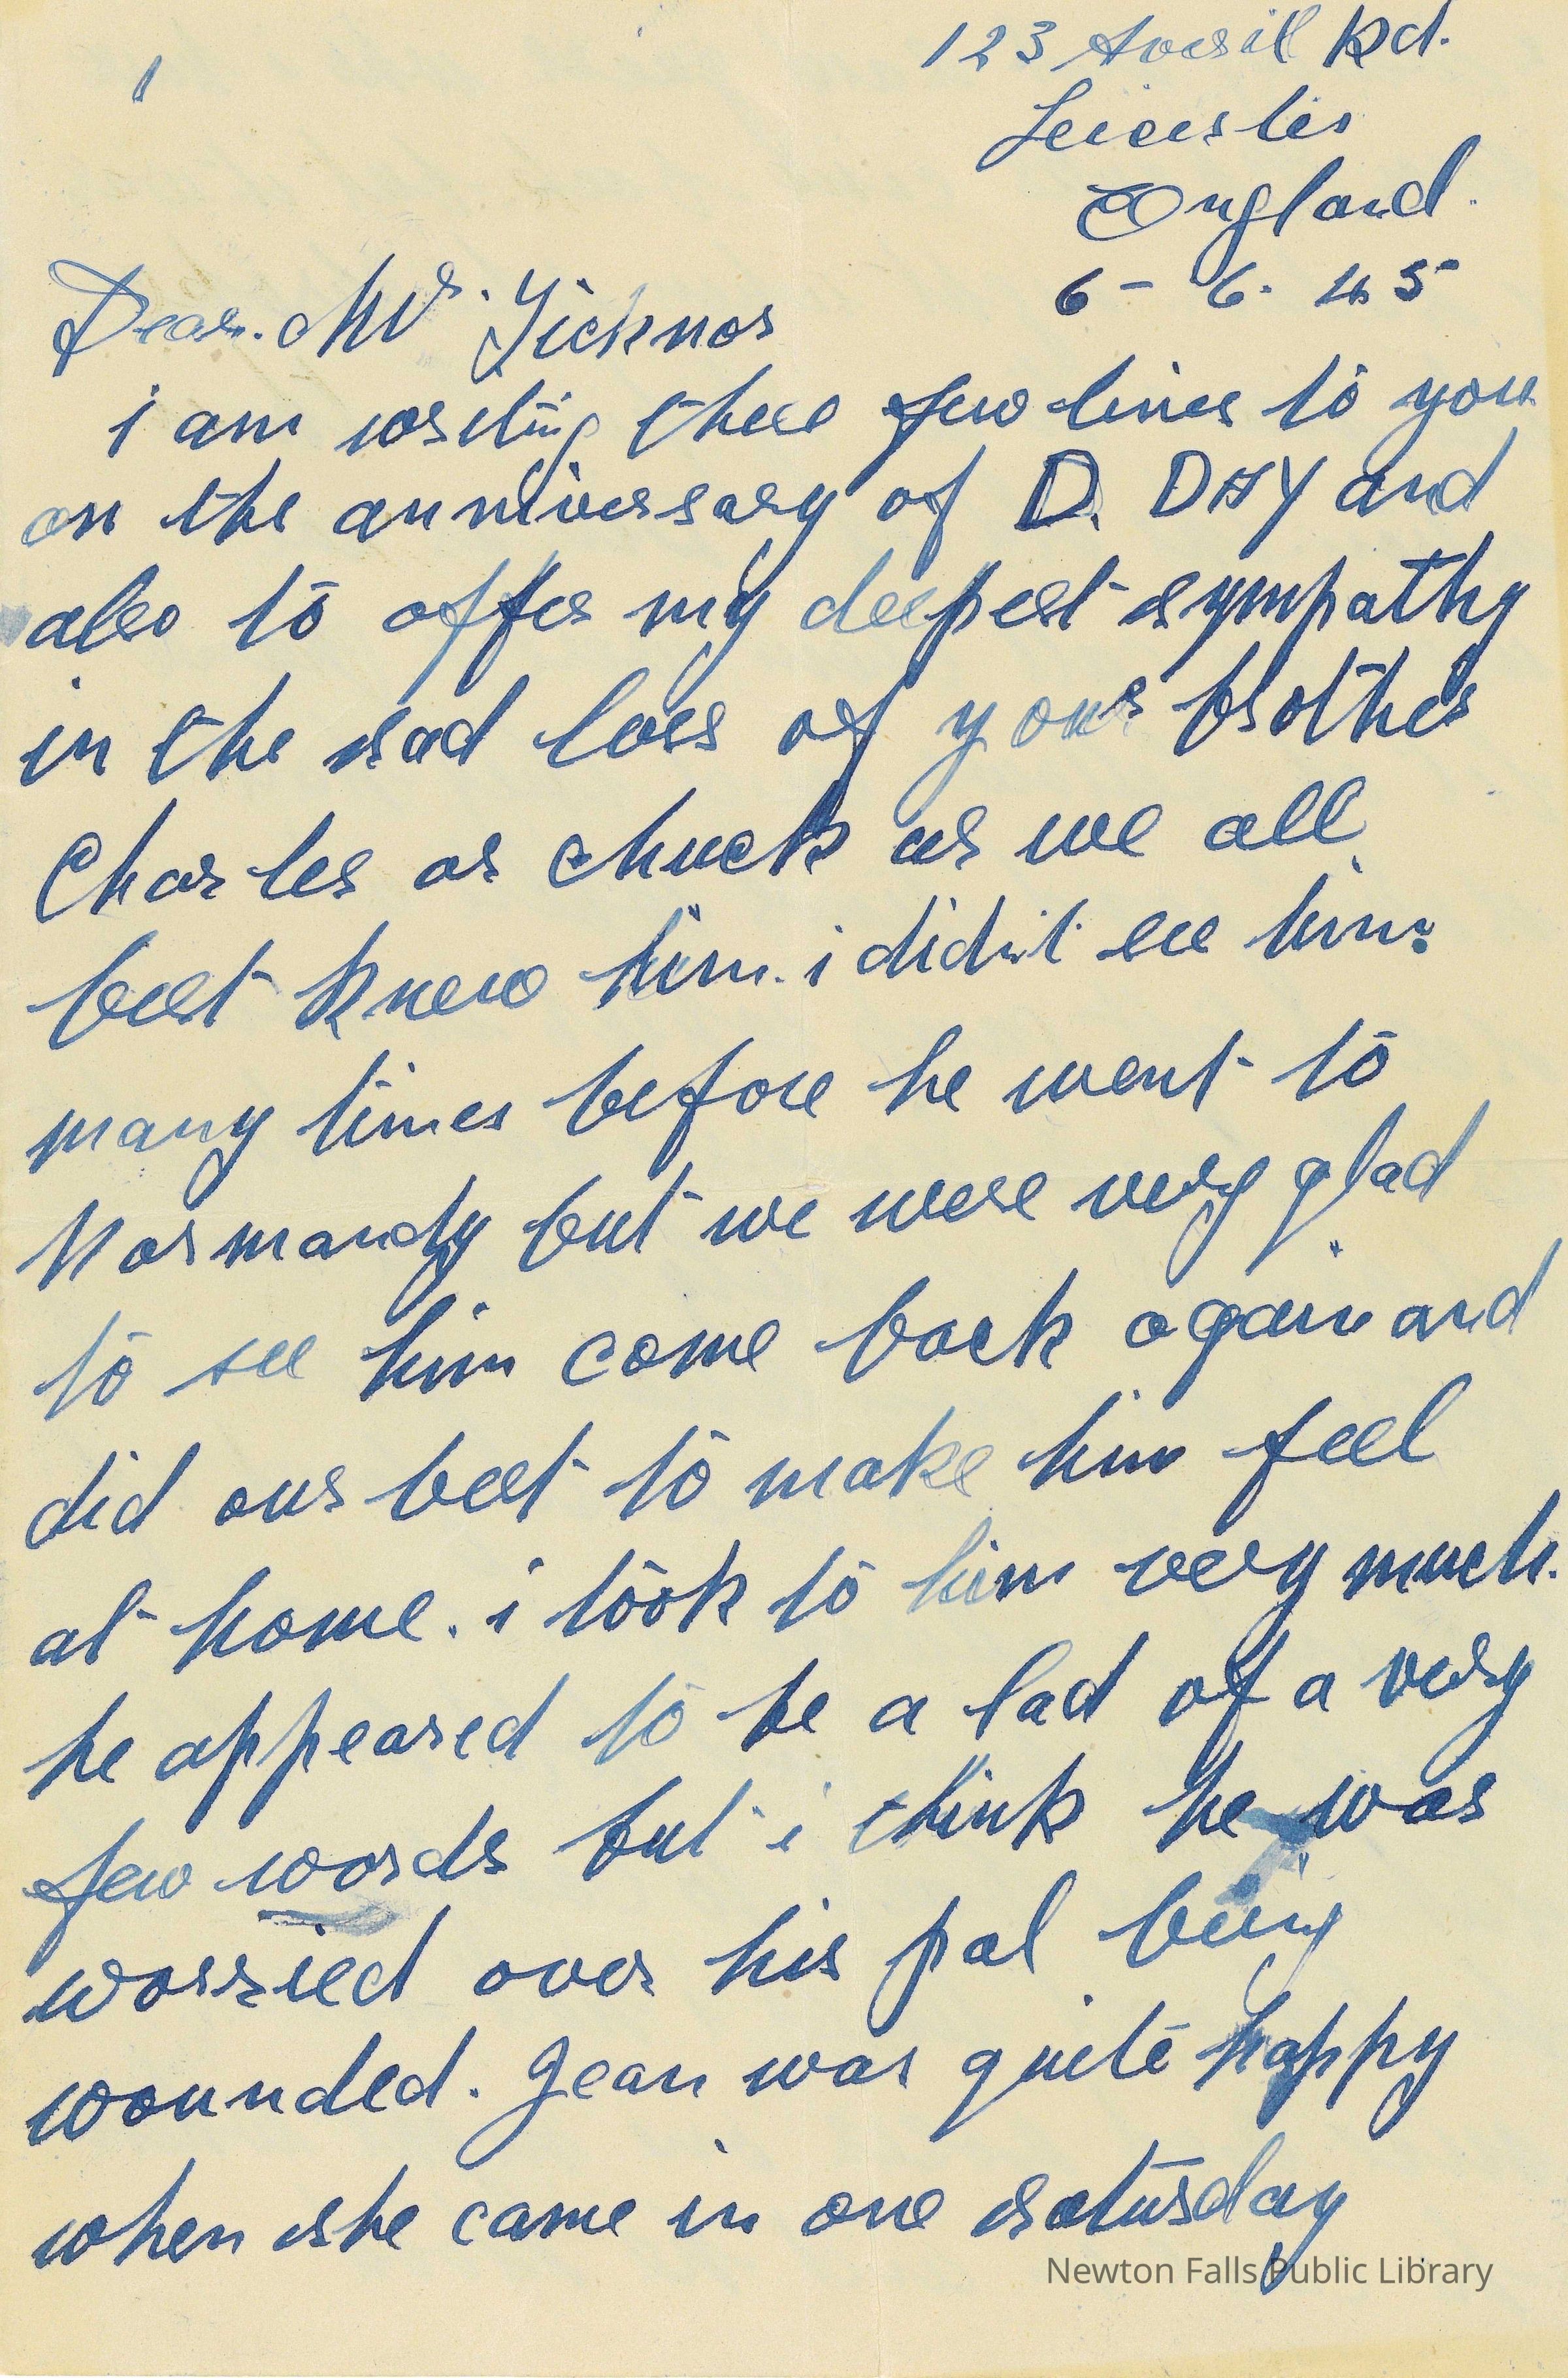 1
123 Averil Rd.
Leicester
England.
6 - 6. 45
Dear. Mr. Ticknor
i am writing these few lines to you
on the anniversary of D. DAY and
also to offer my deepest sympathy
in the sad loss of your brother
Charles or Chuck as we all
best knew him. i didn't see him
many times before he went to
Normandy but we were very glad
to see him come back again and
did our best to make him feel
at home. i took to him very much.
he appeared to be a lad of a very
few words but i think he was
worried over his pal being
wounded. Jean was quite happy
when she came in one saturday
Newton Falls Public Library